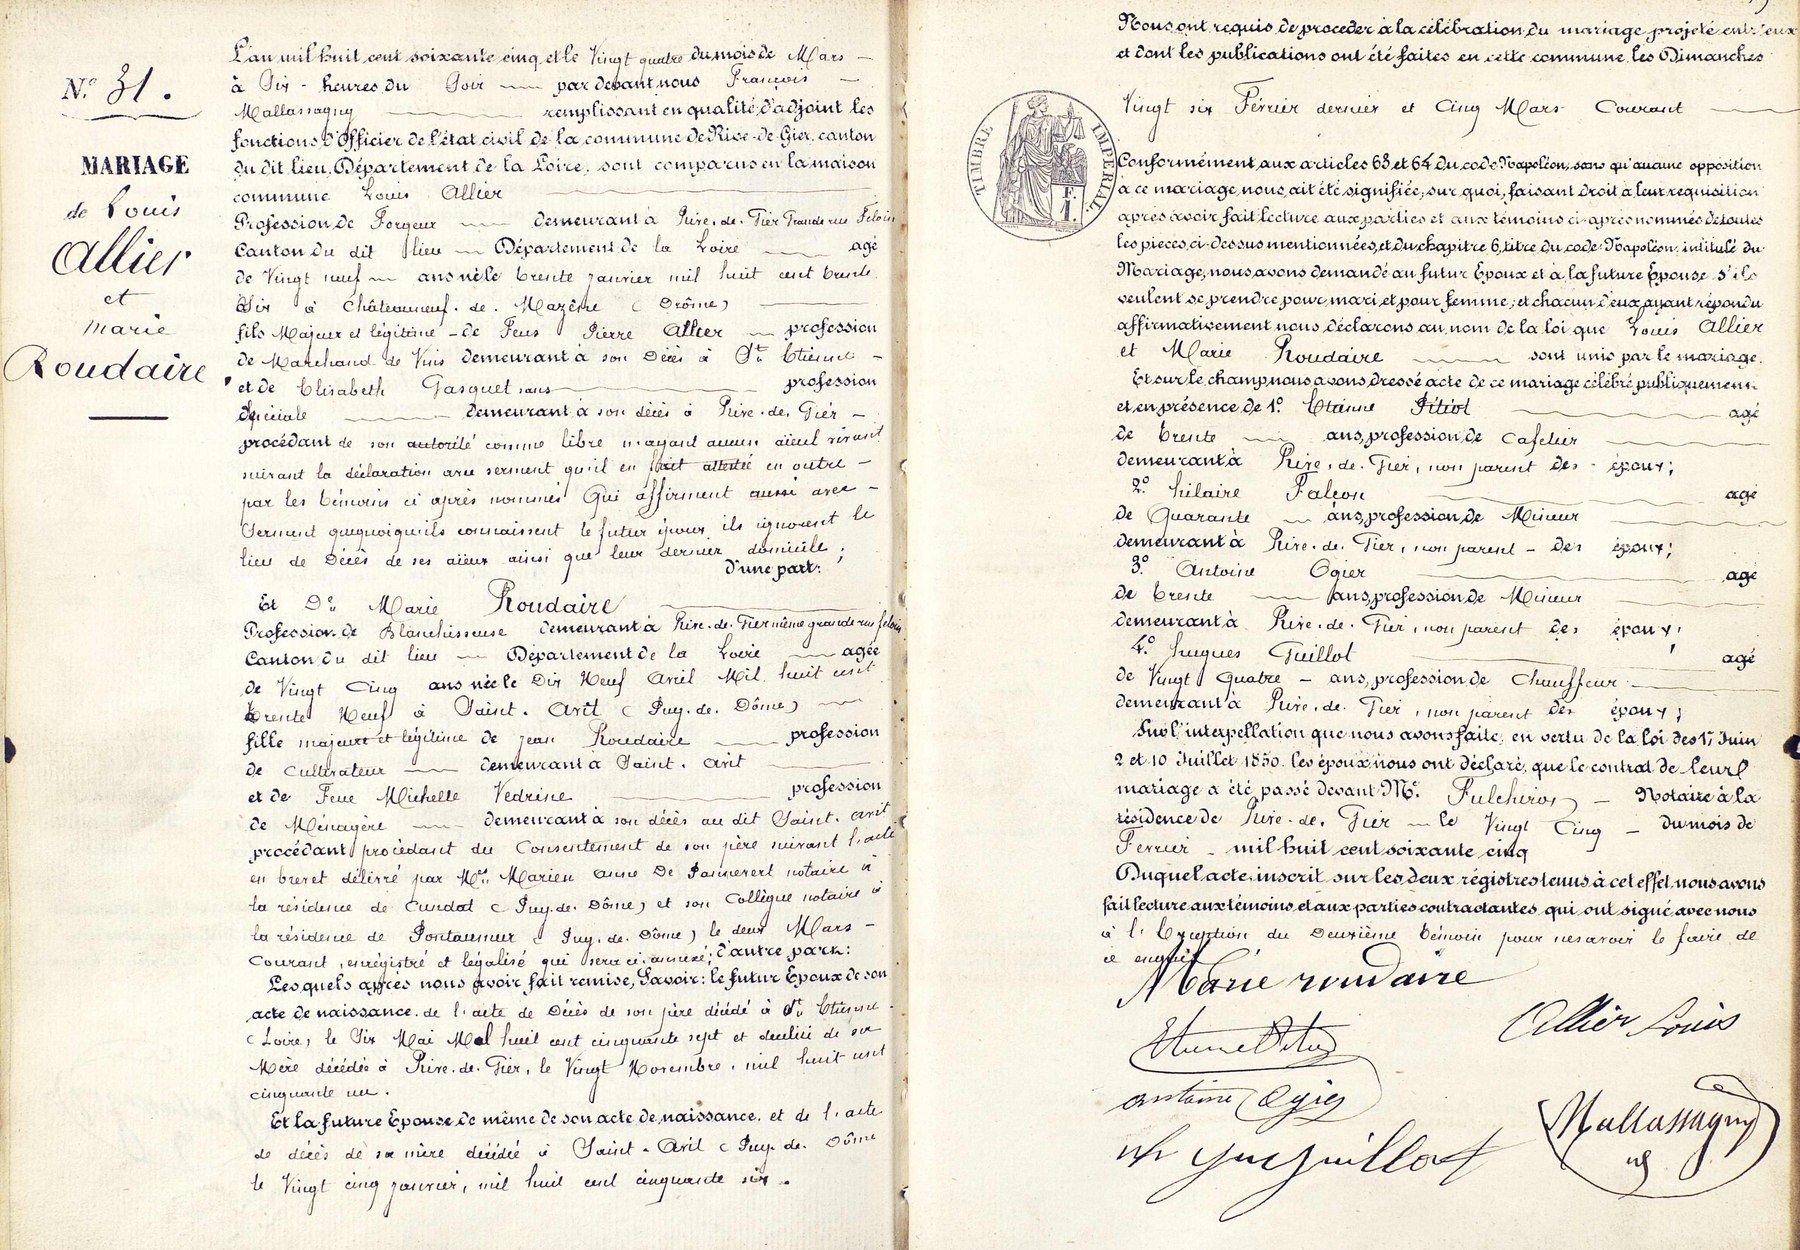 N.° 31.
MARIAGE
de Louis
Allier
et
marie
Roudaire
L'an mil huit cent soixante cinq et le Vingt quatre du mois de Mars
à Six heures du Soir par devant nous François
Mallassagny remplissant en qualité d'adjoint les
fonctions d'Officier de l'état civil de la commune de Rive-de-Gier, canton
du dit lieu, Département de la Loire, sont comparus en la maison
commune Louis Allier
Profession de Forgeur demeurant à Rive-de-Gier Grande rue Feloin
Canton du dit lieu Département de la Loire agé
de Vingt neuf ans né le trente janvier mil huit cent trente
Six à Châteauneuf-de-Mazène (Drôme)
fils Majeur et légitime de Feus Pierre Allier profession
de Marchand de Vins demeurant à son Décès à St. Etienne
et de Elisabeth Gasquet sans profession
spéciale demeurant à son décès à Rive-de-Gier
procédant de son autorité comme libre n'ayant aucun aïeul vivant
suivant la déclaration avec serment qu'il en fait attesté en outre
par les témoins ci après nommés Qui affirment aussi avec
Serment quoiqu'ils connaissent le futur époux, ils ignorent le
lieu de Décès de ses aïeux ainsi que leur dernier domicile;
d'une part.
Et Dlle Marie Roudaire
Profession de Blanchisseuse demeurant à Rive-de-Gier même grande rue feloin
Canton du dit lieu Département de la Loire agée
de Vingt Cinq ans née le Dix Neuf Avril Mil huit cent
trente Neuf à Saint-Avit (Puy-de-Dôme)
fille majeure et légitime de jean Roudaire profession
de Cultivateur demeurant à Saint-Avit
et de Feue Michelle Vedrine profession
de Ménagère demeurant à son décès au dit Saint-Avit
procédant procédant du Consentement de son père suivant l'acte
en brevet délivré par Me Marien Anne De Pannevert notaire à
la résidence de Condat (Puy-de-Dôme) et son Collègue notaire à
la résidence de Pontaumur (Puy-de-Dôme) le deux Mars
Courant, enregistré et légalisé qui sera ci annexé; d'autre part:
Lesquels après nous avoir fait remise, Savoir: le futur Epoux de son
acte de naissance. de l'acte de Décès de son père décédé à St. Etienne
(Loire) le Six Mai Mil huit cent cinquante sept et de celui de sa
Mère décédée à Rive-de-Gier, le Vingt Novembre, mil huit cent
cinquante un.
Et la future Epouse de même de son acte de naissance. et de l'acte
de décès de sa mère décédée à Saint-Avit (Puy-de-Dôme
le Vingt cinq janvier, mil huit cent cinquante six.
Nous ont requis de procéder à la célébration du mariage projeté entr'eux
et dont les publications ont été faites en cette commune les Dimanches
Vingt six Février dernier et Cinq Mars Courant
TIMBRE IMPERIAL.
F.
1.
Conformément aux articles 63 et 64 du code Napoléon, sans qu'aucune opposition
à ce mariage nous ait été signifiée, sur quoi, faisant droit à leur requisition
après avoir fait lecture aux parties et aux témoins ci-après nommés de toutes
les pièces ci-dessus mentionnées, et du chapitre 6, titre du code Napoléon intitulé du
Mariage, nous avons demandé au futur Epoux et à la future Epouse s'ils
veulent se prendre pour mari et pour femme; et chacun d'eux ayant répondu
affirmativement nous déclarons au nom de la loi que Louis Allier
et Marie Roudaire sont unis par le mariage.
Et sur le champ nous avons dressé acte de ce mariage célébré publiquement
et en présence de 1.° Etienne Pitiot agé
de trente ans, profession de Cafetier
demeurant à Rive-de-Gier, non parent des époux;
2.° hilaire Falcon agé
de Quarante ans, profession de Mineur
demeurant à Rive-de-Gier, non parent des époux;
3.° Antoine Ogier agé
de trente ans, profession de Mineur
demeurant à Rive-de-Gier, non parent des époux;
4.° hugues Guillot agé
de Vingt Quatre ans, profession de Chauffeur
demeurant à Rive-de-Gier, non parent des époux;
Sur l'interpellation que nous avons faite, en vertu de la loi des 17 Juin
2 et 10 Juillet 1850. les époux nous ont déclaré, que le contrat de leur
mariage a été passé devant Me. Fulchiron Notaire à la
résidence de Rive-de-Gier le Vingt Cinq du mois de
Fevrier mil huit cent soixante cinq
Duquel acte, inscrit sur les deux régistres tenus à cet effet, nous avons
fait lecture aux témoins et aux parties contractantes, qui ont signé avec nous
à l'Exception du Deuxième témoin pour ne savoir le faire de
ce enquis
Marie roudaire
Allier Louis
Etienne Pitiot
antoine Ogier
Mallassagny
Guillot